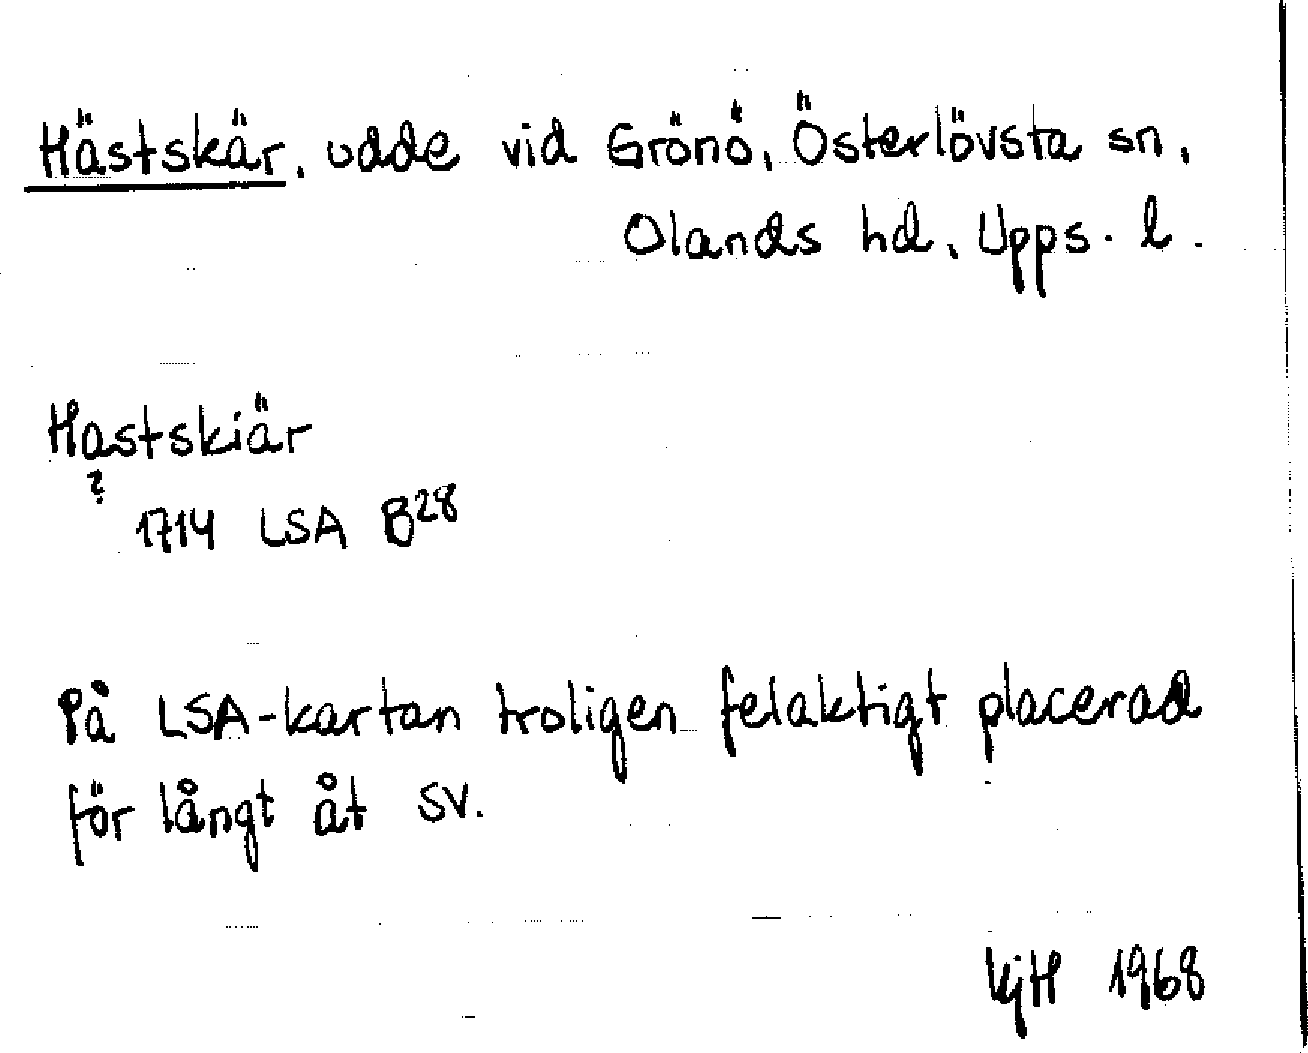 Hästskär, udde vid Grönö, Österlövsta sn,
Olands hd, Upps. l.
Hastskiär
?
1714 LSA B28
På LSA-kartan troligen felaktigt placerad
för långt åt SV.
KjH 1968